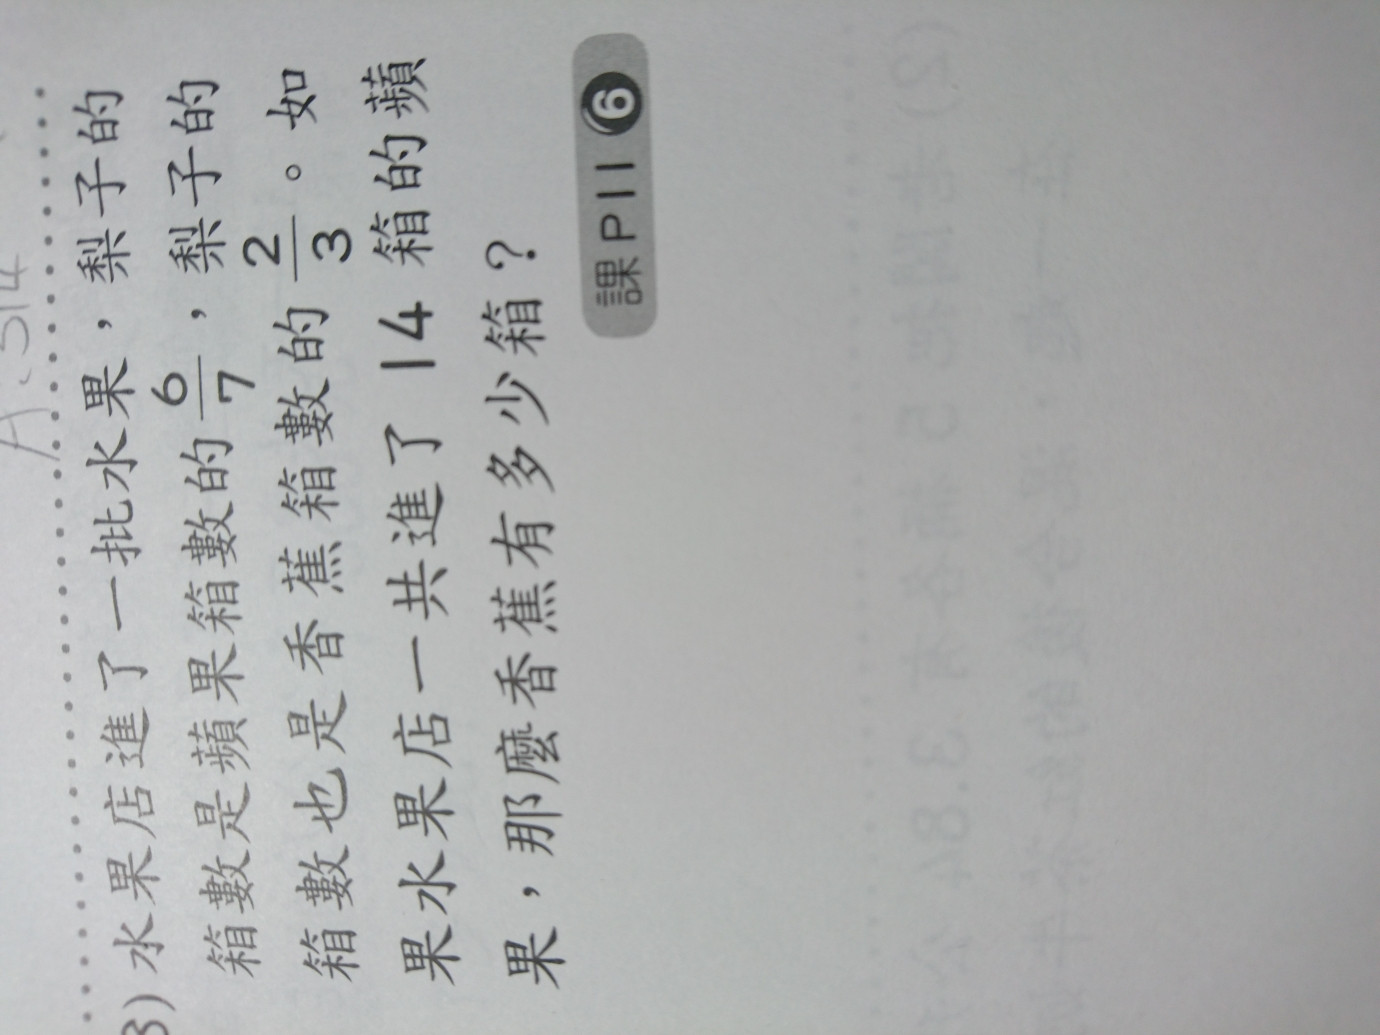 A:314
3) 水果店進了一批水果，梨子的
箱數是蘋果箱數的6/7，梨子的
箱數也是香蕉箱數的2/3。如
果水果店一共進了 14 箱的蘋
果，那麼香蕉有多少箱？
課P11 6